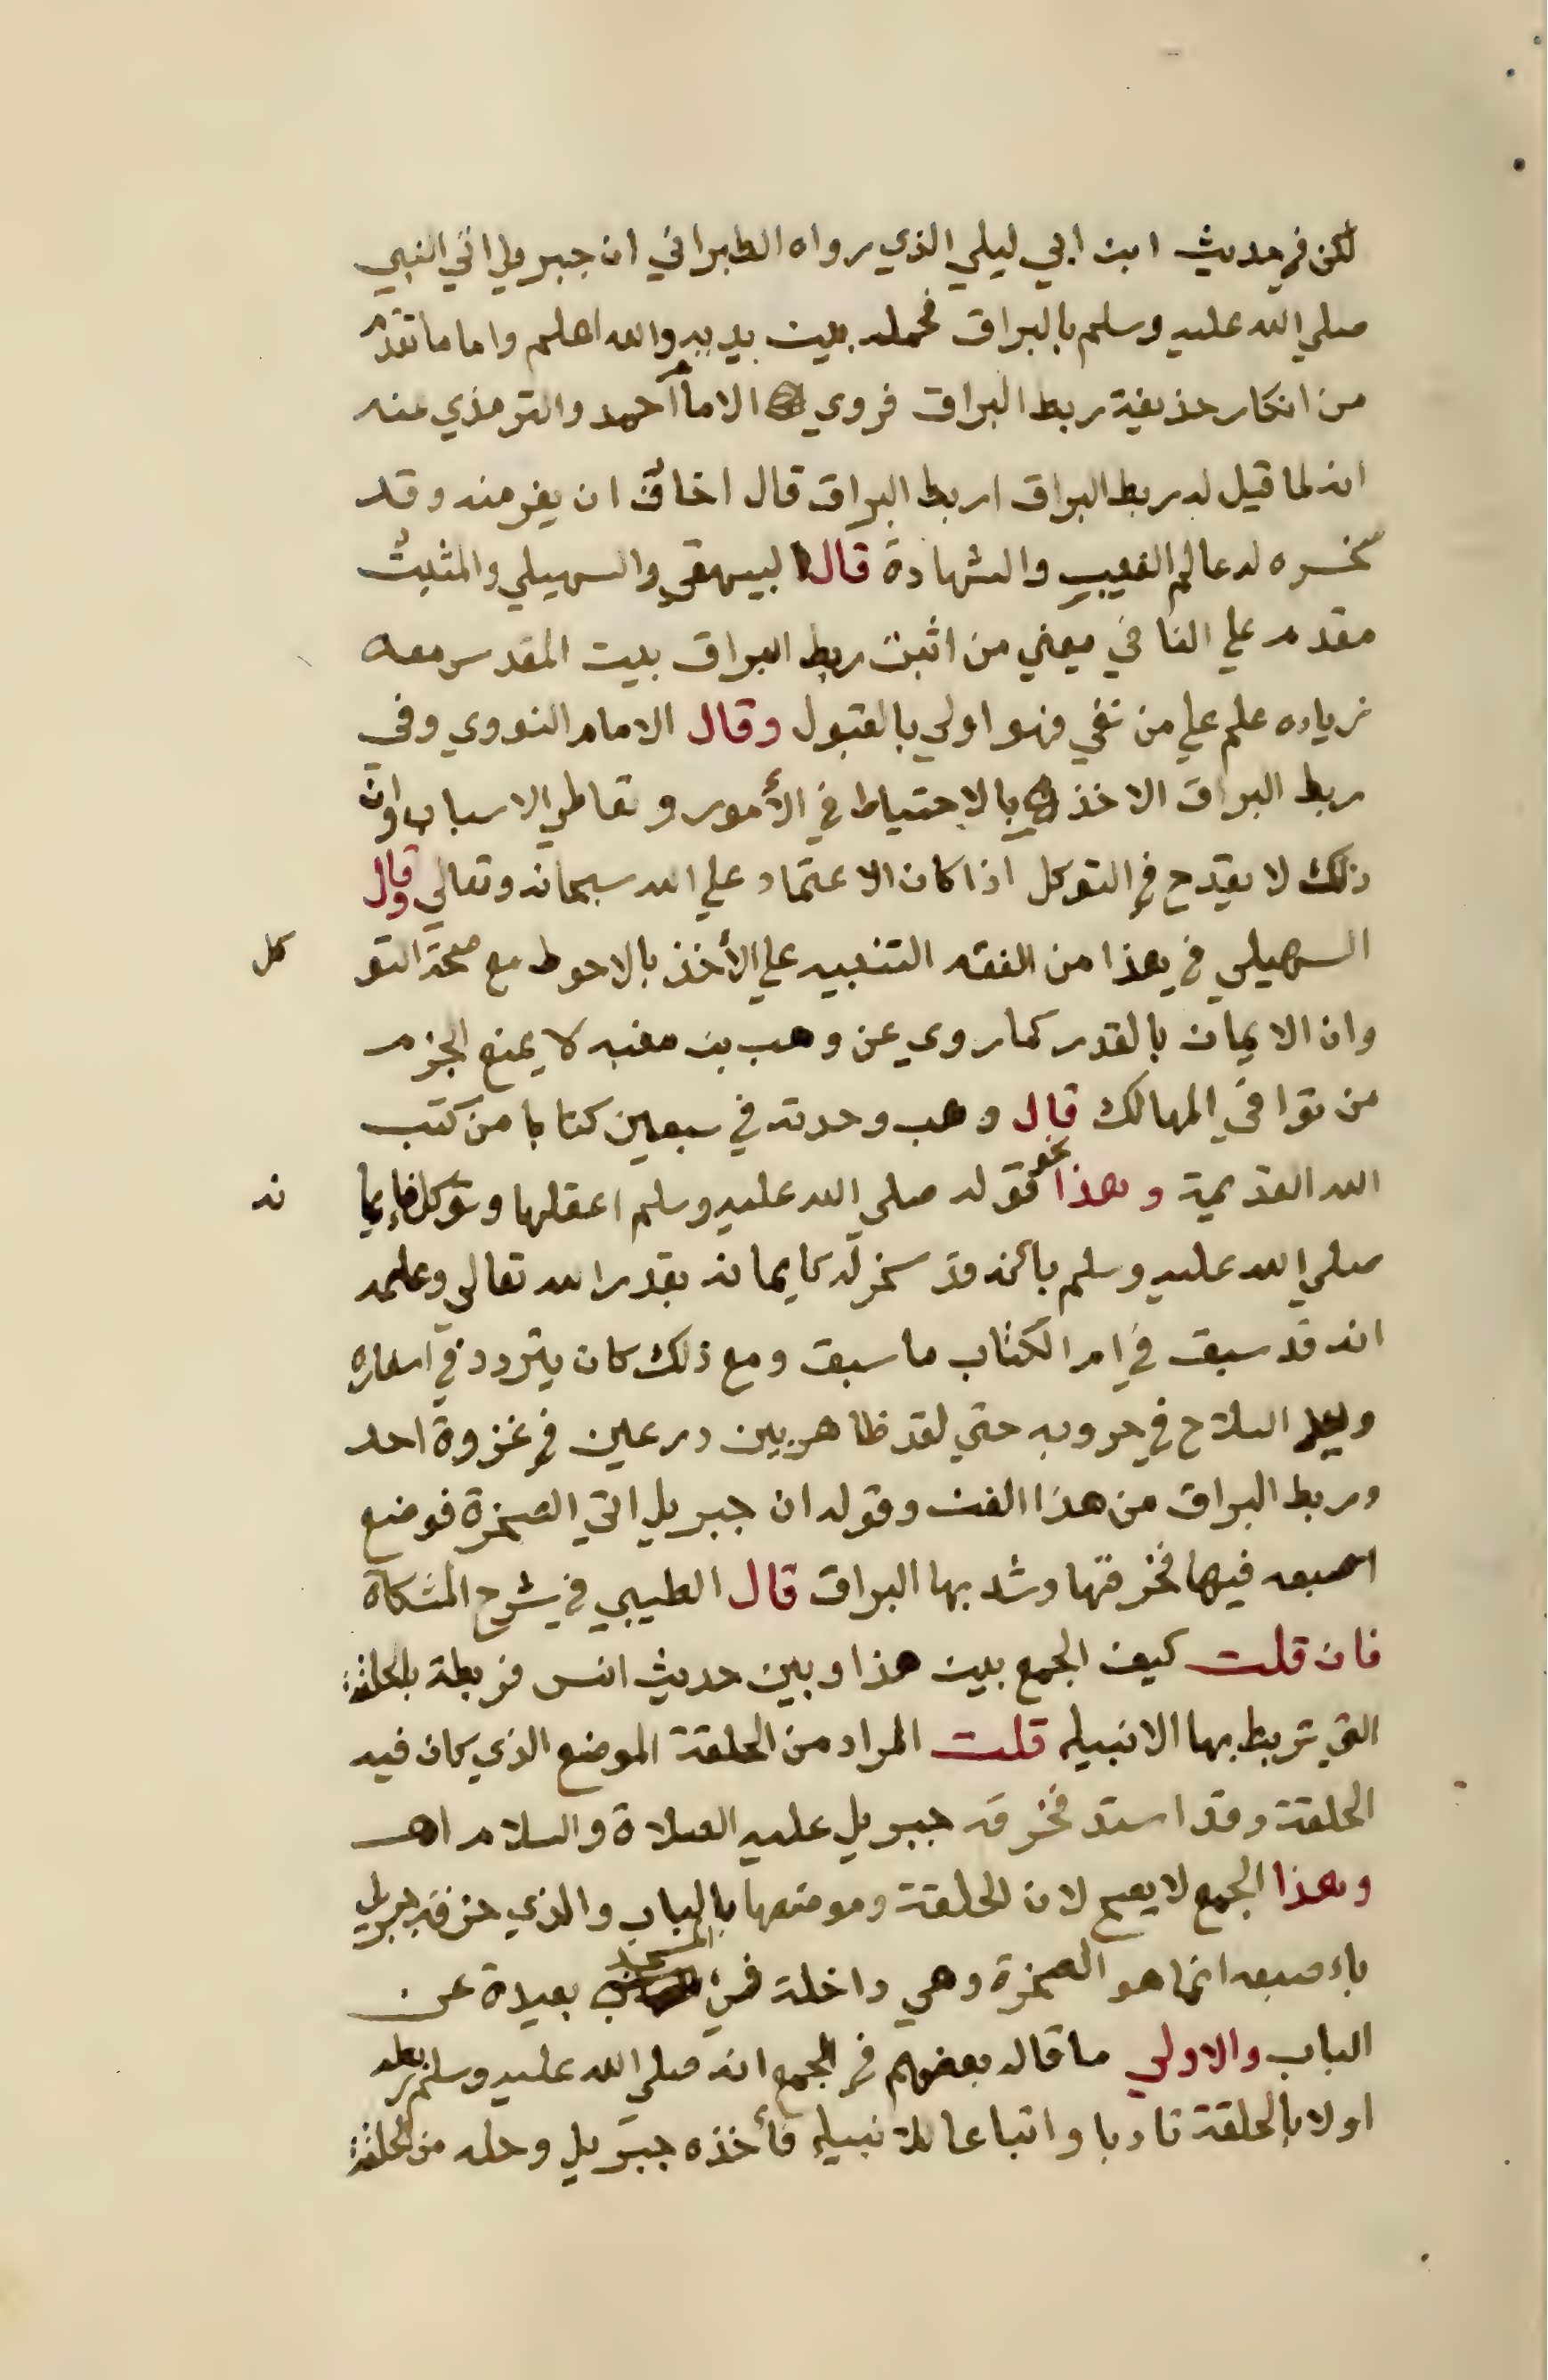 لكن في حديث ابن ابي ليلي الذي رواه الطبراني ان جبريل اتي النبي
صلي الله عليه وسلم بالبراق فحمله بين يديه والله اعلم واما ما تقدم
من انكار حذيفة ربط البراق فروي الامام احمد والترمذي عنه
انه لما قيل له ربط البراق اربط البراق قال اخاف ان يفر منه وقد
سخره له عالم الغيب والشهادة قال البيهقي والسهيلي والمثبت
مقدم علي النافي يعني من اثبت ربط البراق ببيت المقدس معه
زياده علم علي من نفي فهو اولي بالقبول وقال الامام النووي وفي
ربط البراق الاخذ بالاحتياط في الأمور وتعاطي الاسباب وان
ذلك لا يقدح في التوكل اذا كان الاعتماد علي الله سبحانه وتعالي وقال
السهيلي في هذا من الفقه التنبيه علي الأخذ بالاحوط مع صحة التو كل
وان الايمان بالقدر كما روي عن وهب بن منبه لا يمنع الحزم
من توافي المهالك قال وهب وجدته في سبعين كتابا من كتب
الله القديمة وهذا نحو قوله صلي الله عليه وسلم اعقلها وتوكل فإيما نه
صلي الله عليه وسلم بأنه قد سخر له كايمانه بقدر الله تعالي وعلمه
انه قد سبق في ام الكتاب ما سبق ومع ذلك كان يتزود في اسفاره
ويعد السلاح في حروبه حتي لقد ظاهر بين درعين في غزوة احد
وربط البراق من هذا الفن وقوله ان جبريل اتي الصخرة فوضع
اصبعه فيها فخرقها وشد بها البراق قال الطيبي في شرح المشكاة
فان قلت كيف الجمع بين هذا وبين حديث انس فربطة بالحلقة
التي تربط بها الانبياء قلت المراد من الحلقة الموضع الذي كان فيه
الحلقة وقد استد فخرقه جبريل عليه الصلاة والسلام اهـ
وهذا الجمع لا يصح لان الحلقة وموضعها بالباب والذي خرقه جبريل
باءصبعه انما هو الصخرة وهي داخلة في المسجد بعيدة عن
الباب والاولي ما قاله بعضهم في الجمع انه صلي الله عليه وسلم ربطه
اولا بالحلقة تادبا واتباعا للانبياء فأخذه جبريل وحله من الحلقة